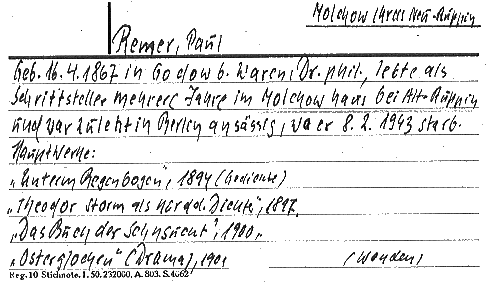 Molchow Kreis Neu-Ruppin
Remer, Paul
Geb. 16.4.1867 in Godow b. Waren, Dr. phil., lebte als
Schriftsteller mehrere Jahre im Molchow haus bei Alt-Ruppin
und war zuletzt in Berlin ansässig, wo er 8.2.1943 starb.
Hauptwerke:
„Unterm Regenbogen", 1894 (Gedichte)
„Theodor Storm als nordd. Dichter", 1897.
„Das Buch der Sehnsucht", 1900,
„Osterglocken" (Drama), 1901 (wenden)
Reg. 10 Stichnote. I. 50. 232000. A. 803. S. 4662